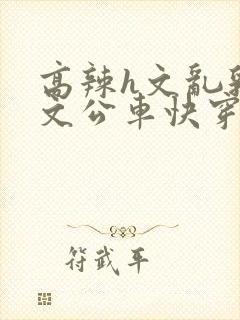 高辣h文亂
文公車快穿
符武平